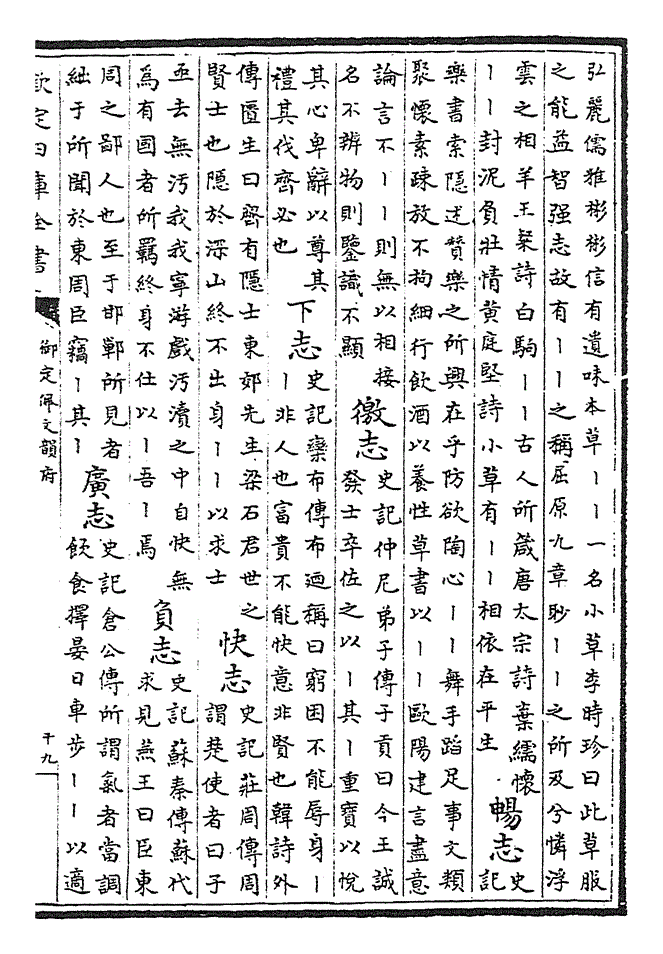 弘麗儒雅彬彬信有遺味本草丨丨一名小草李時珍曰此草服
之能益智强志故有丨丨之稱屈原九章眇丨丨之所及兮憐浮
雲之相羊王粲詩白駒丨丨古人所箴唐太宗詩棄繻懷
丨丨封泥負壯情黄庭堅詩小草有丨丨相依在平生
暢志
史記
樂書索隱述贊樂之所興在乎防欲陶心丨丨舞手蹈足事文類
聚懷素疎放不拘細行飲酒以養性草書以丨丨歐陽建言盡意
論言不丨丨則無以相接
名不辨物則鑒識不顯
徼志
史記仲尼弟子傳子貢曰今王誠
發士卒佐之以丨其丨重寶以悅
其心卑辭以尊其
禮其伐齊必也
下志
史記欒布傳布迺稱曰窮困不能辱身丨
丨非人也富貴不能快意非賢也韓詩外
傳匱生曰齊有隱士東郊先生梁石君世之
賢士也隱於深山終不出身丨丨以求士
快志
史記莊周傳周
謂楚使者曰子
亟去無汚我我寧游戲汚瀆之中自快無
爲有國者所羈終身不仕以丨吾丨焉
負志
史記蘇秦傳蘇代
求見燕王曰臣東
周之鄙人也至于邯鄲所見者
絀于所聞於東周臣竊丨其丨
廣志
史記倉公傳所謂氣者當調
飲食擇晏日車步丨丨以適
欽定四庫全書
御定佩文韻府
十九